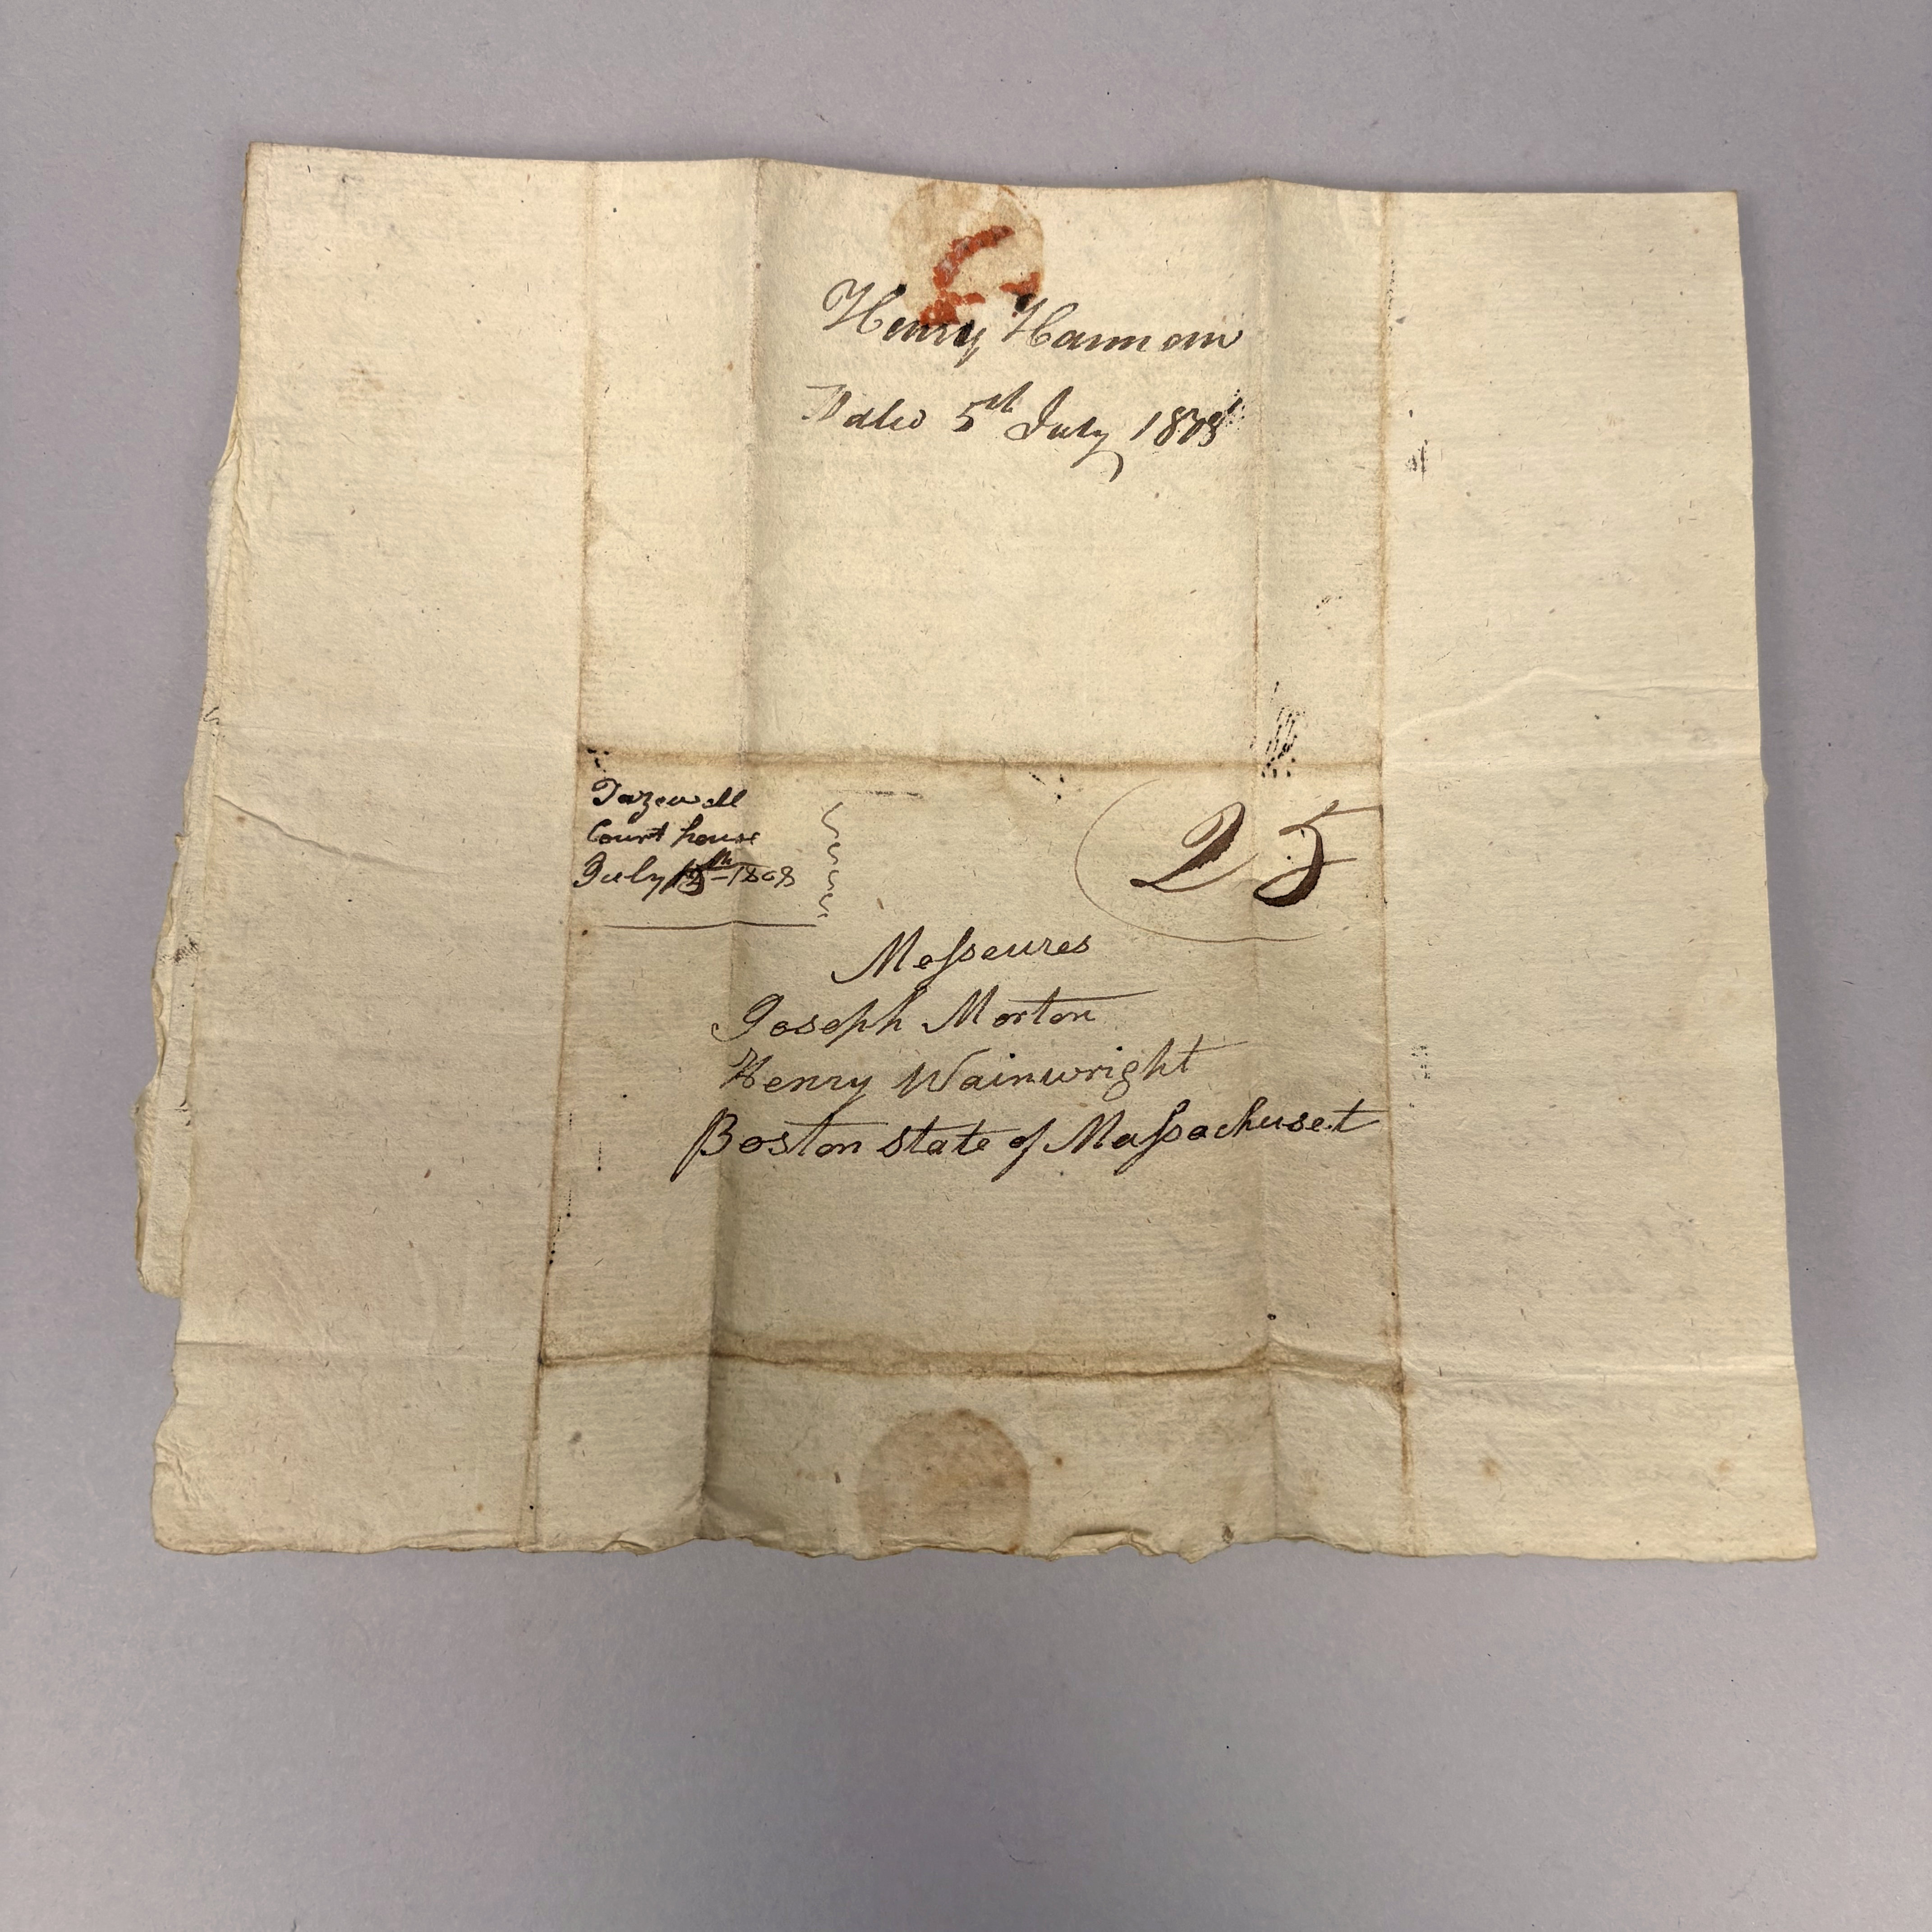 Henry Hannan
5th July 1808
Tazewell
Court house
July th - 1808
25
Messeures
Joseph Morton
Henry Wainwright
Boston state of Massachuset